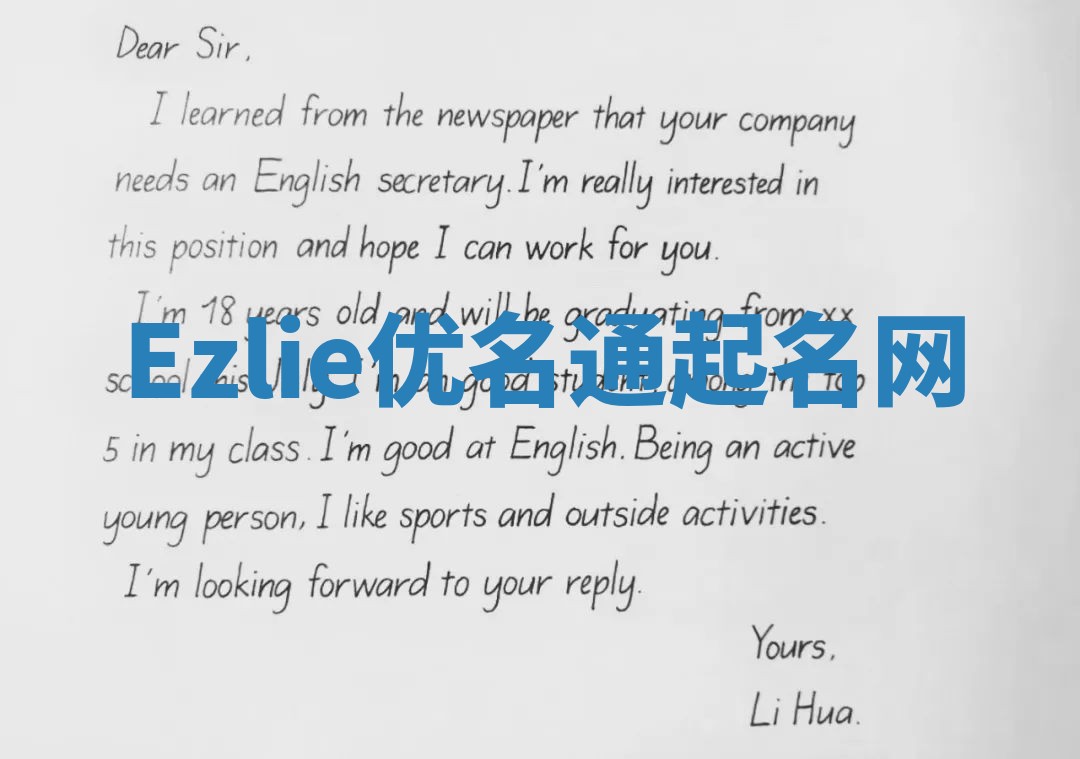 Dear Sir,
I learned from the newspaper that your company
needs an English secretary. I'm really interested in
this position and hope I can work for you.
I'm 18 years old and will be graduating from xx
Ezlie优名通起名网
school this July. I'm an good student, among the top
5 in my class. I'm good at English. Being an active
young person, I like sports and outside activities.
I'm looking forward to your reply.
Yours,
Li Hua.